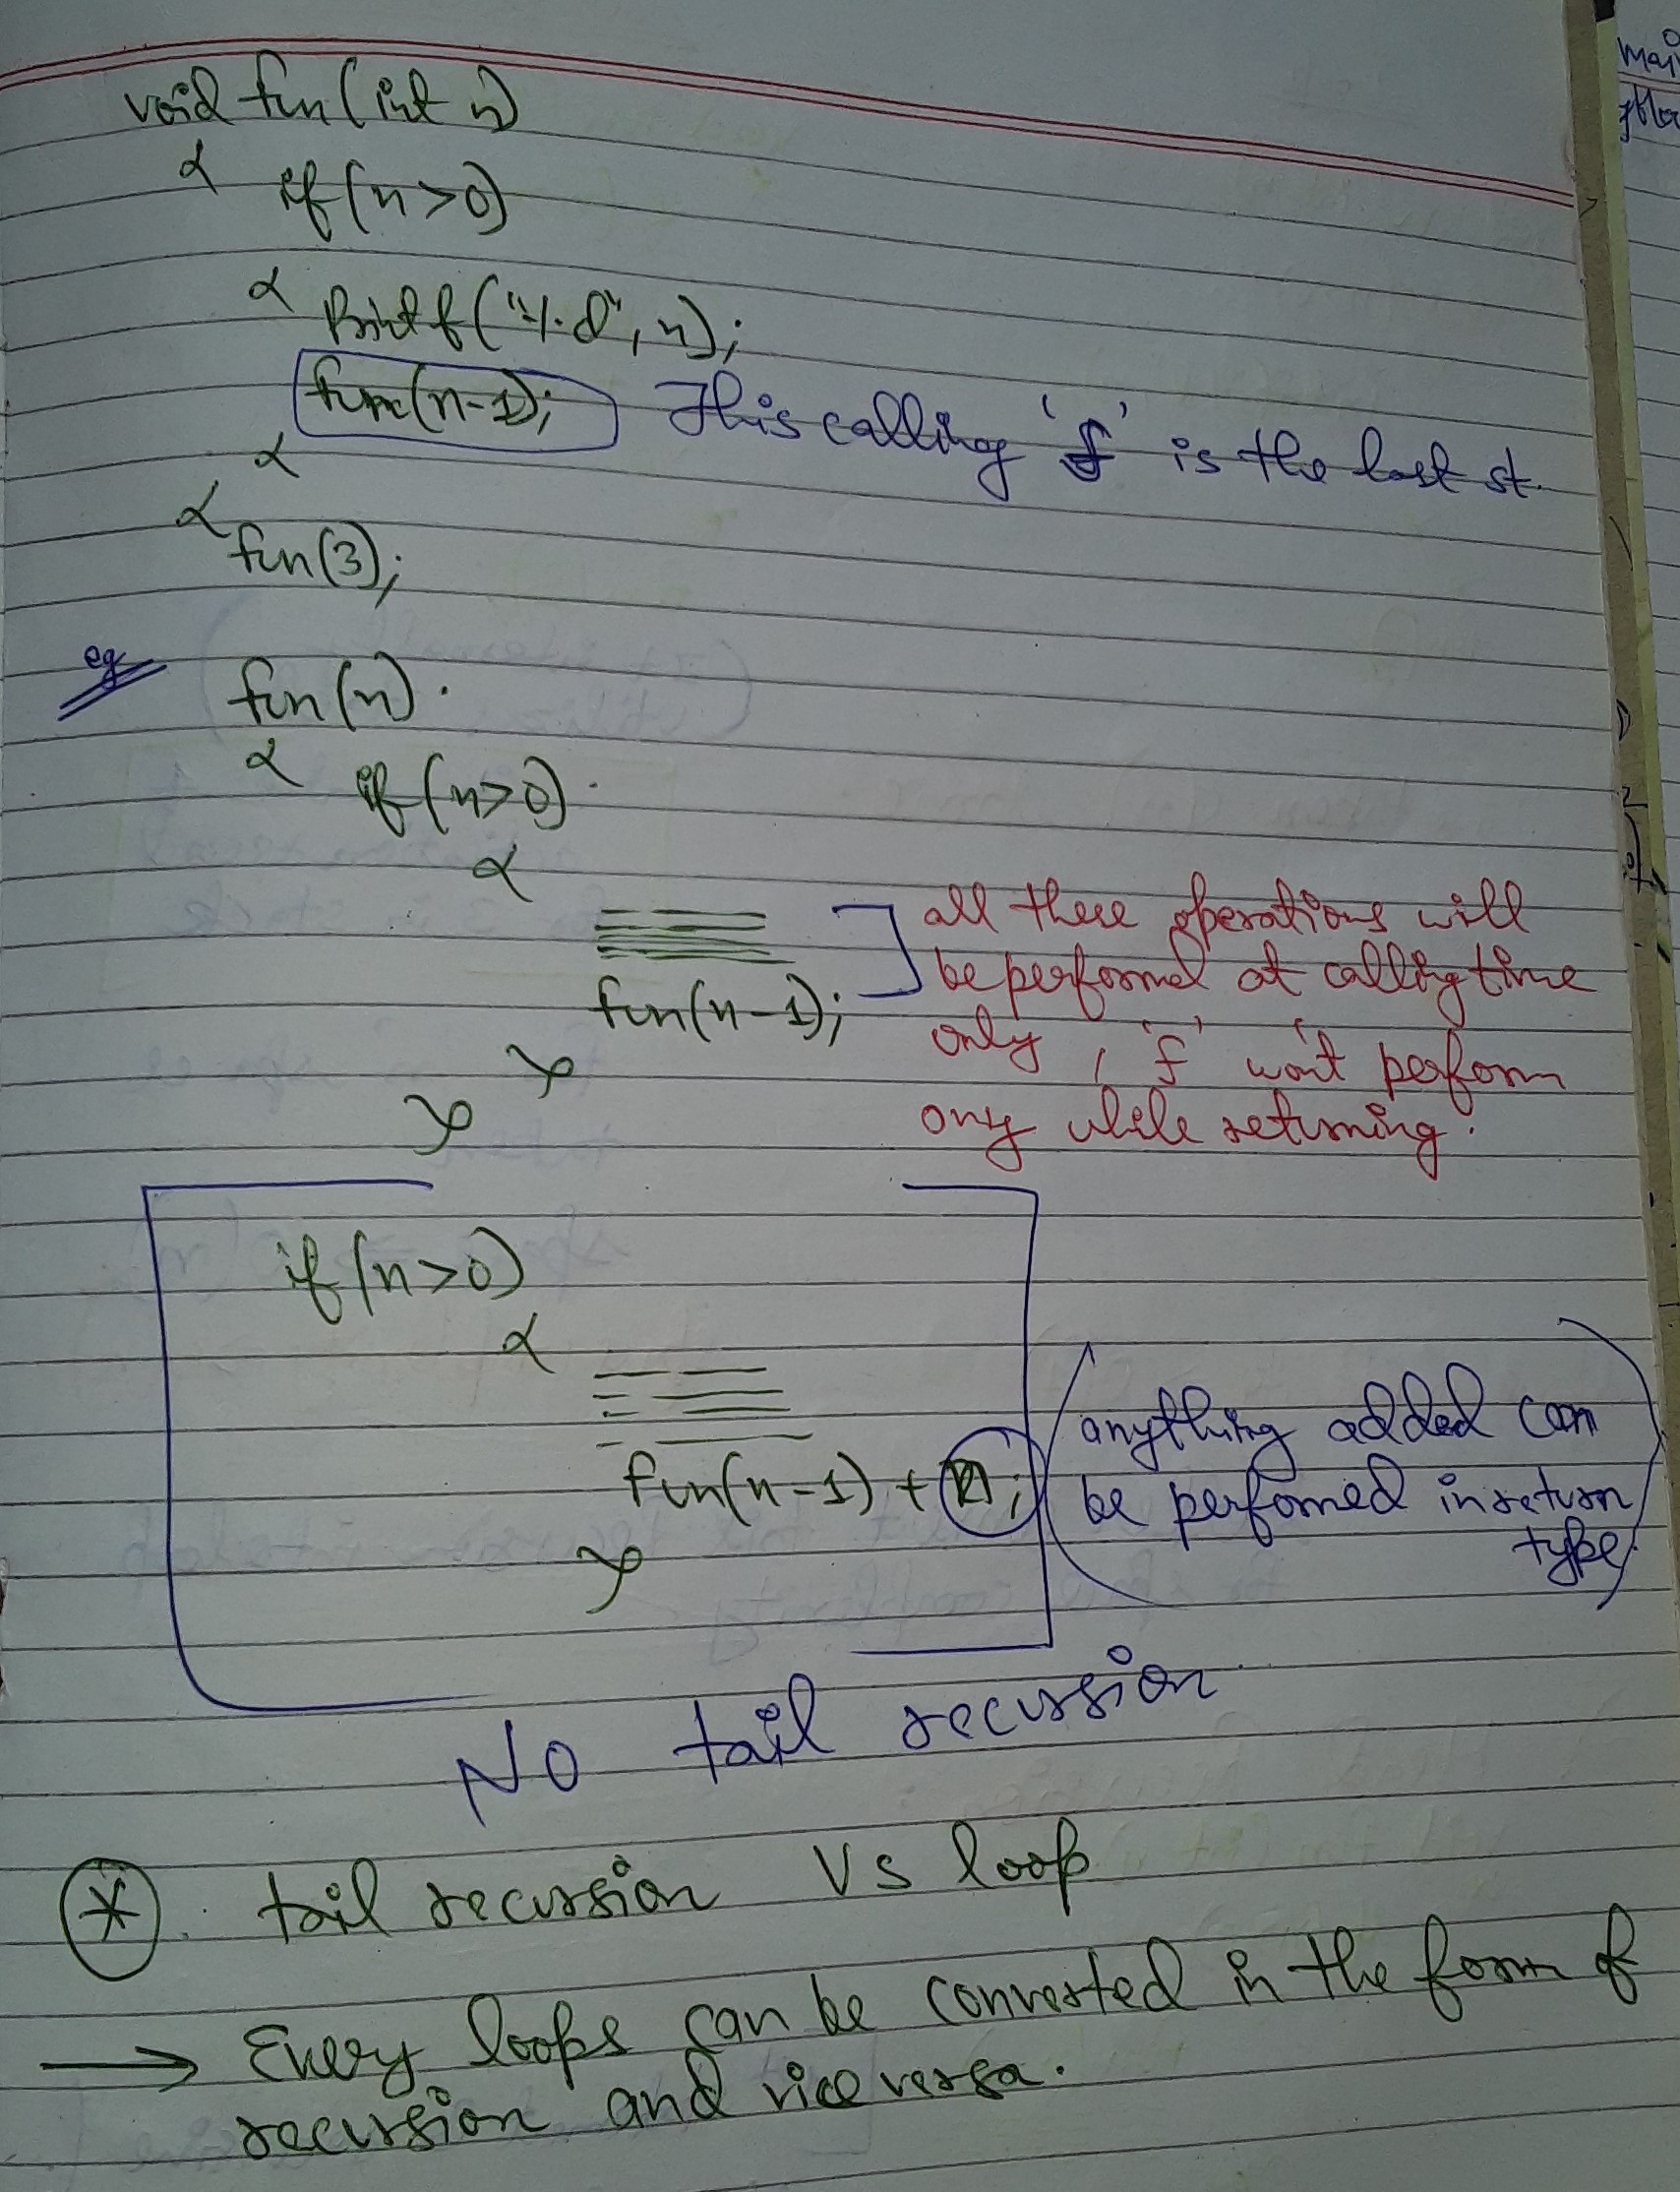 void fun(int n)
{
if(n>0)
{
Printf("%d", n);
func(n-1); This calling 'f' is the last st.
}
}
fun(3);
eg fun(n).
{
if(n>0).
{
fun(n-1);
all these operations will
be performed at calling time
only, 'f' won't perform
any while returning.
}
}
if(n>0)
{
fun(n-1) + n;
anything added can
be performed in return
type.
}
No tail recursion
* tail recursion Vs loop
→ Every loops can be converted in the form of
recursion and vice versa.